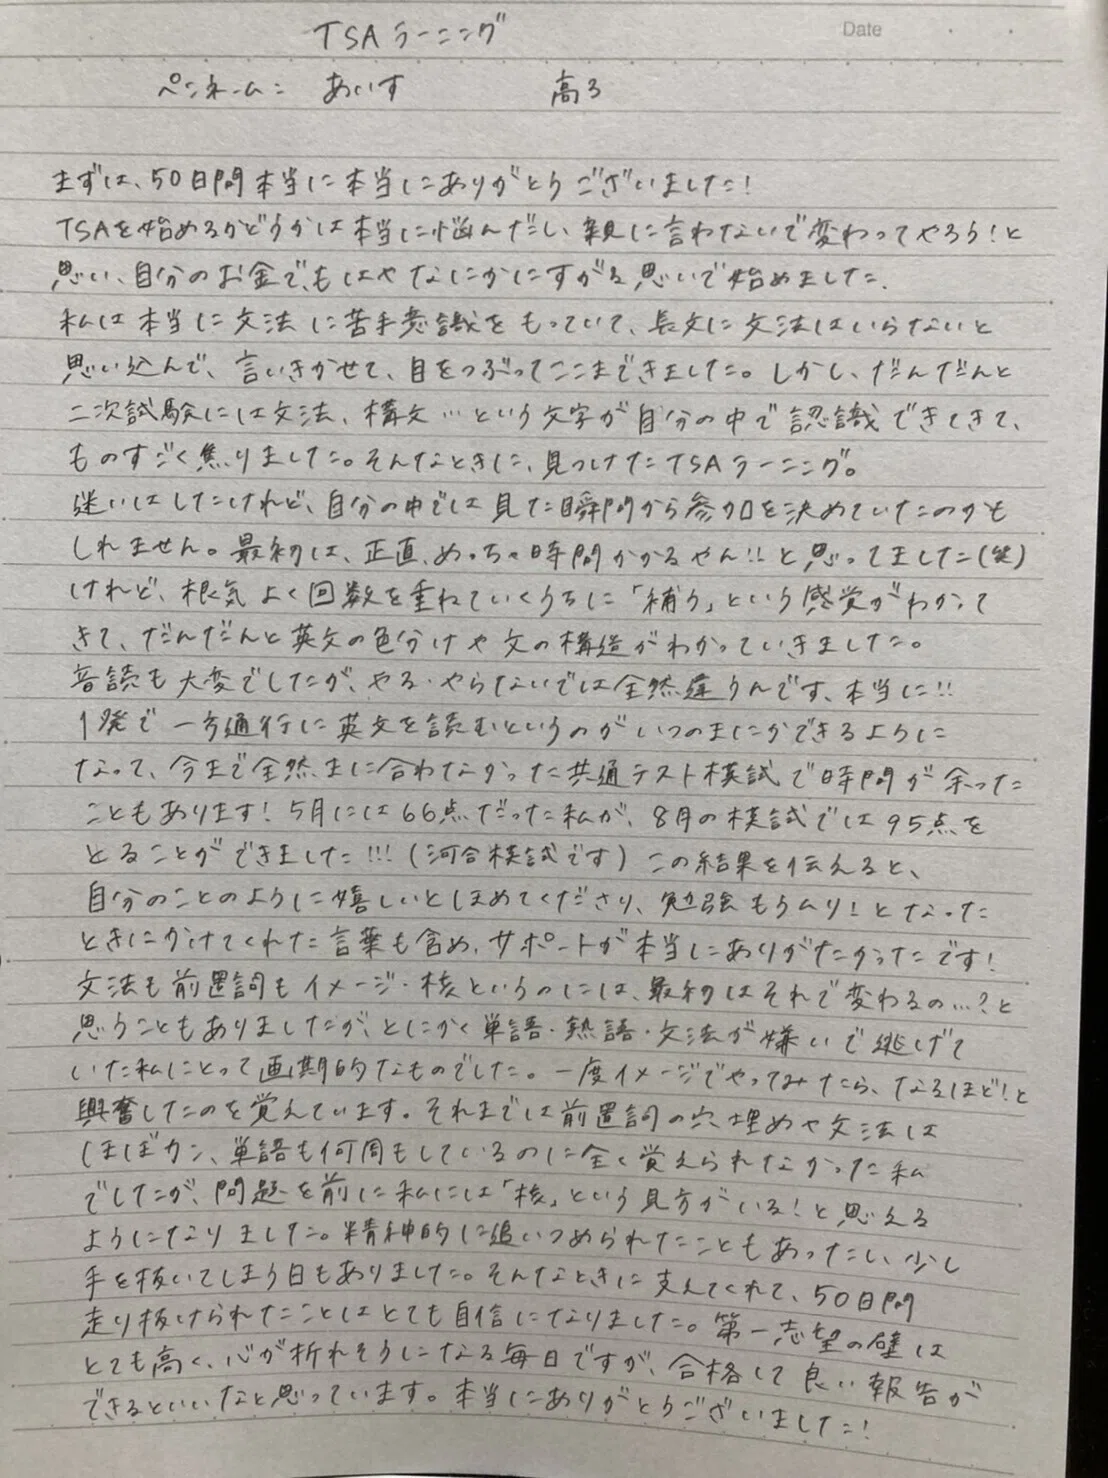 TSAラーニング
Date
ペンネーム： あいす 高3
まずは、50日間本当に本当にありがとうございました！
TSAを始めるかどうかは本当に悩んだし、親に言わないで変わってやろう！と
思い、自分のお金で、もはやなにかにすがる思いで始めました。
私は本当に文法に苦手意識をもっていて、長文に文法はいらないと
思い込んで、言いきかせて、目をつぶってここまできました。しかし、だんだんと
二次試験には文法、構文…という文字が自分の中で認識できてきて、
ものすごく焦りました。そんなときに、見つけたTSAラーニング。
迷いはしたけれど、自分の中では見た瞬間から参加を決めていたのかも
しれません。最初は、正直、めっちゃ時間かかるやん!!と思ってました(笑)
けれど、根気よく回数を重ねていくうちに「補う」という感覚がわかって
きて、だんだんと英文の色分けや文の構造がわかっていきました。
音読も大変でしたが、やる・やらないでは全然違うんです、本当に!!
1発で一方通行に英文を読むというのがいつのまにかできるように
なって、今まで全然まに合わなかった共通テスト模試で時間が余った
こともあります！5月には66点だった私が、8月の模試では95点を
とることができました!!!(河合模試です)この結果を伝えると、
自分のことのように嬉しいとほめてくださり、勉強もうムリ！となった
ときにかけてくれた言葉も含め、サポートが本当にありがたかったです！
文法も前置詞もイメージ・核というのには、最初はそれで変わるの…？と
思うこともありましたが、とにかく単語・熟語・文法が嫌いで逃げて
いた私にとって画期的なものでした。一度イメージでやってみたら、なるほど！と
興奮したのを覚えています。それまでは前置詞の穴埋めや文法は
ほぼカン、単語も何周もしているのに全く覚えられなかった私
でしたが、問題を前に私には「核」という見方がいる！と思える
ようになりました。精神的に追いつめられたこともあったし、少し
手を抜いてしまう日もありました。そんなときに支えてくれて、50日間
走り抜けられたことはとても自信になりました。第一志望の壁は
とても高く、心が折れそうになる毎日ですが、合格して良い報告が
できるといいなと思っています。本当にありがとうございました！